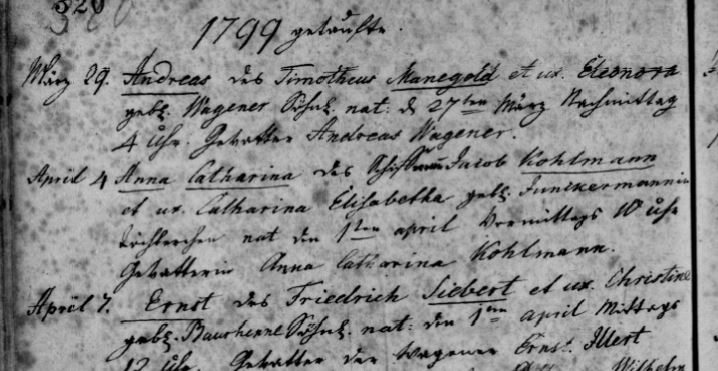 320
1799 getaufte.
März 29. Andreas des Timotheus Manegold et ux. Eleonora
gebh. Wagener Söhnl. nat: d 27ten März Nachmittag
4 Uhr. Gevatter Andreas Wagener.
April 4 Anna Catharina des Schiffmann Jacob Kohlmann
et ux. Catharina Elisabetha gebh. Junckermannin
Töchterchen nat den 1ten april Vormittags 10 Uhr
Gevatterin Anna Catharina Kohlmann.
April 7. Ernst des Friedrich Siebert et ux. Christine
gebh. Söhnl. nat: den 1ten april Mittags
12 Uhr. Gevatter der Wagener Ernst Illert
Wilhelm